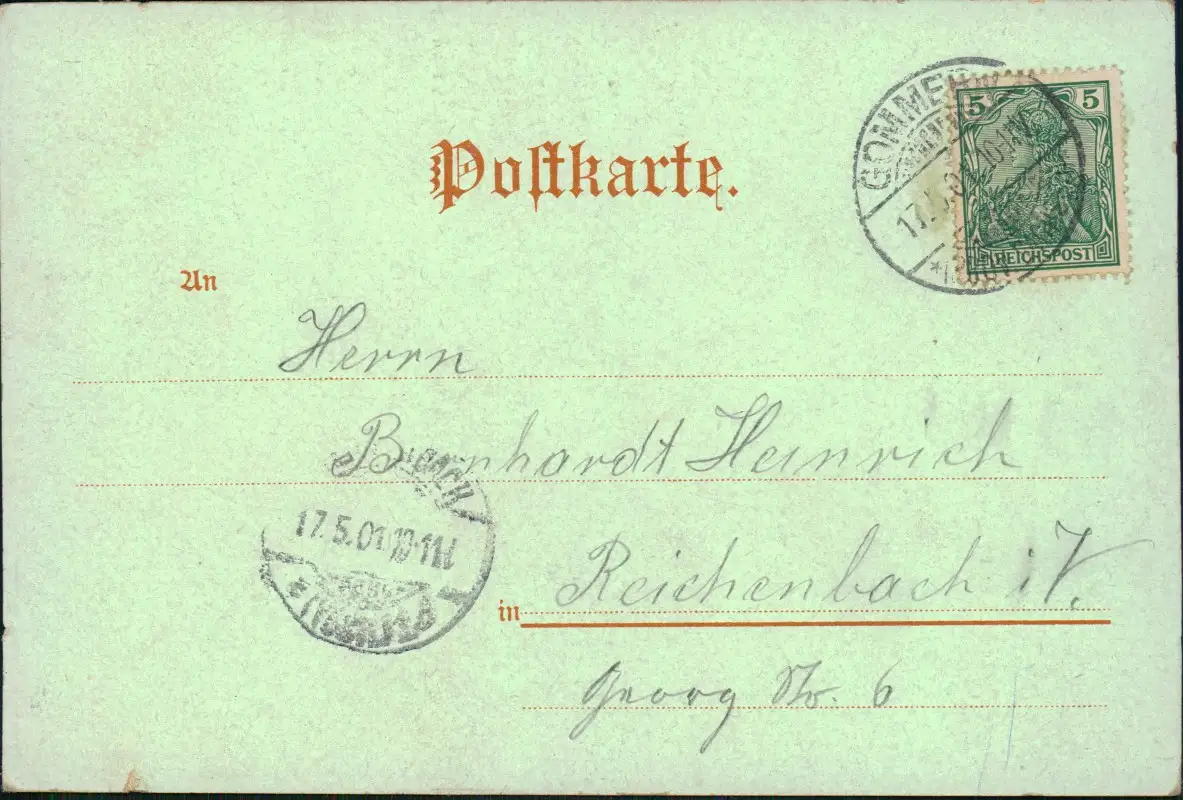 Postkarte.
5 5
REICHSPOST
17.5.01 10-11V
An
Herrn
Bernhardt Heinrich
17.5.01.10-11V
in Reichenbach i/V.
Georg Str. 6